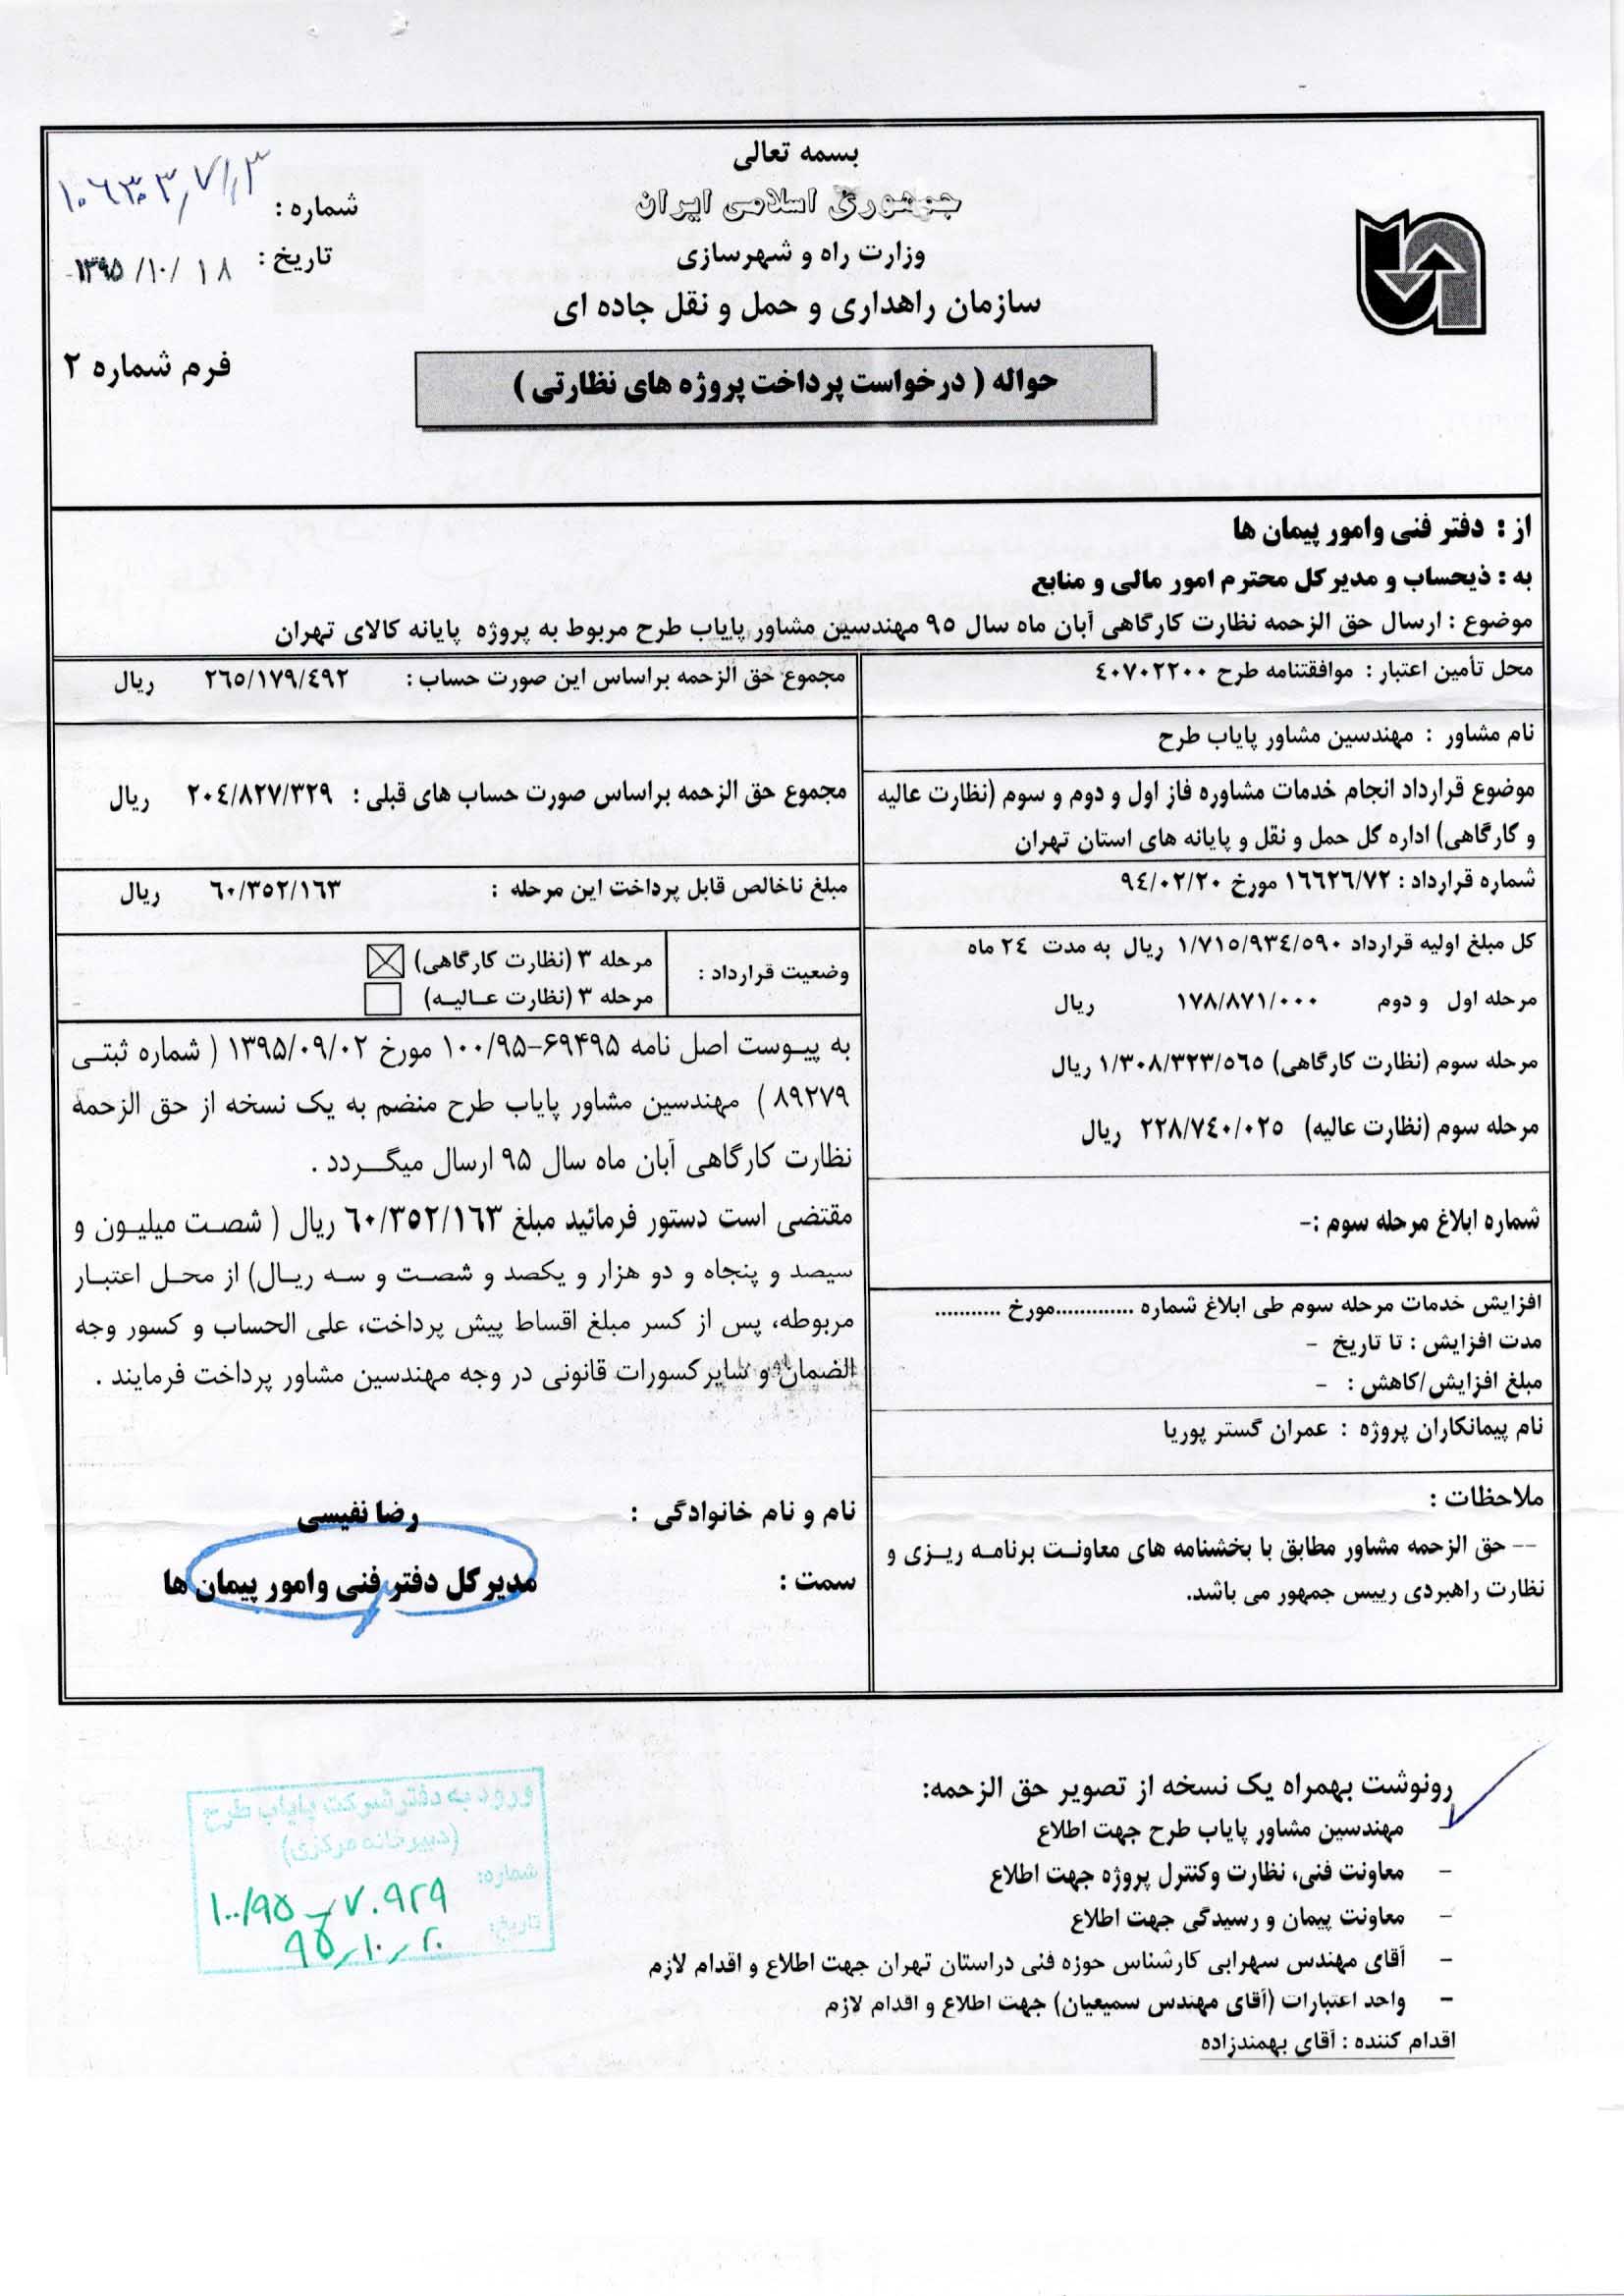 بسمه تعالی
جمهوری اسلامی ایران
وزارت راه و شهرسازی
سازمان راهداری و حمل و نقل جاده ای
شماره :
تاریخ : ۱۳۹۵/۱۰/۱۸
فرم شماره ۲
حواله ( درخواست پرداخت پروژه های نظارتی )
از : دفتر فنی وامور پیمان ها
به : ذیحساب و مدیرکل محترم امور مالی و منابع
موضوع : ارسال حق الزحمه نظارت کارگاهی آبان ماه سال ۹۵ مهندسین مشاور پایاب طرح مربوط به پروژه پایانه کالای تهران
محل تأمین اعتبار : موافقتنامه طرح ۴۰۷۰۲۲۰۰
نام مشاور : مهندسین مشاور پایاب طرح
موضوع قرارداد انجام خدمات مشاوره فاز اول و دوم و سوم (نظارت عالیه
و کارگاهی) اداره کل حمل و نقل و پایانه های استان تهران
شماره قرارداد : ۱۶۶۲۶/۷۲ مورخ ۹۴/۰۲/۲۰
کل مبلغ اولیه قرارداد ۱/۷۱۵/۹۳۴/۵۹۰ ریال به مدت ۲۴ ماه
مرحله اول و دوم ۱۷۸/۸۷۱/۰۰۰ ریال
مرحله سوم (نظارت کارگاهی) ۱/۳۰۸/۳۲۳/۵۶۵ ریال
مرحله سوم (نظارت عالیه) ۲۲۸/۷۴۰/۰۲۵ ریال
شماره ابلاغ مرحله سوم :-
افزایش خدمات مرحله سوم طی ابلاغ شماره .............مورخ ...........
مدت افزایش : تا تاریخ -
مبلغ افزایش/کاهش : -
نام پیمانکاران پروژه : عمران گستر پوریا
ملاحظات :
-- حق الزحمه مشاور مطابق با بخشنامه های معاونت برنامه ریزی و
نظارت راهبردی رییس جمهور می باشد.
مجموع حق الزحمه براساس این صورت حساب : ۲۶۵/۱۷۹/۴۹۲ ریال
مجموع حق الزحمه براساس صورت حساب های قبلی : ۲۰۴/۸۲۷/۳۲۹ ریال
مبلغ ناخالص قابل پرداخت این مرحله : ۶۰/۳۵۲/۱۶۳ ریال
وضعیت قرارداد :
مرحله ۳ (نظارت کارگاهی)
مرحله ۳ (نظارت عالیه)
به پیوست اصل نامه ۶۹۴۹۵-۱۰۰/۹۵ مورخ ۱۳۹۵/۰۹/۰۲ ( شماره ثبتی
۸۹۲۷۹ ) مهندسین مشاور پایاب طرح منضم به یک نسخه از حق الزحمه
نظارت کارگاهی آبان ماه سال ۹۵ ارسال میگردد .
مقتضی است دستور فرمائید مبلغ ۶۰/۳۵۲/۱۶۳ ریال ( شصت میلیون و
سیصد و پنجاه و دو هزار و یکصد و شصت و سه ریال) از محل اعتبار
مربوطه، پس از کسر مبلغ اقساط پیش پرداخت، علی الحساب و کسور وجه
الضمان و سایرکسورات قانونی در وجه مهندسین مشاور پرداخت فرمایند .
نام و نام خانوادگی : رضا نفیسی
سمت : مدیرکل دفتر فنی وامور پیمان ها
رونوشت بهمراه یک نسخه از تصویر حق الزحمه:
مهندسین مشاور پایاب طرح جهت اطلاع
- معاونت فنی، نظارت وکنترل پروژه جهت اطلاع
- معاونت پیمان و رسیدگی جهت اطلاع
- آقای مهندس سهرابی کارشناس حوزه فنی دراستان تهران جهت اطلاع و اقدام لازم
- واحد اعتبارات (آقای مهندس سمیعیان) جهت اطلاع و اقدام لازم
اقدام کننده : آقای بهمندزاده
ورود به دفتر شرکت پایاب طرح
(دبیرخانه مرکزی)
شماره: ۱۰۰/۹۵-۷۰۹۲۹
تاریخ: ۹۵/۱۰/۲۰